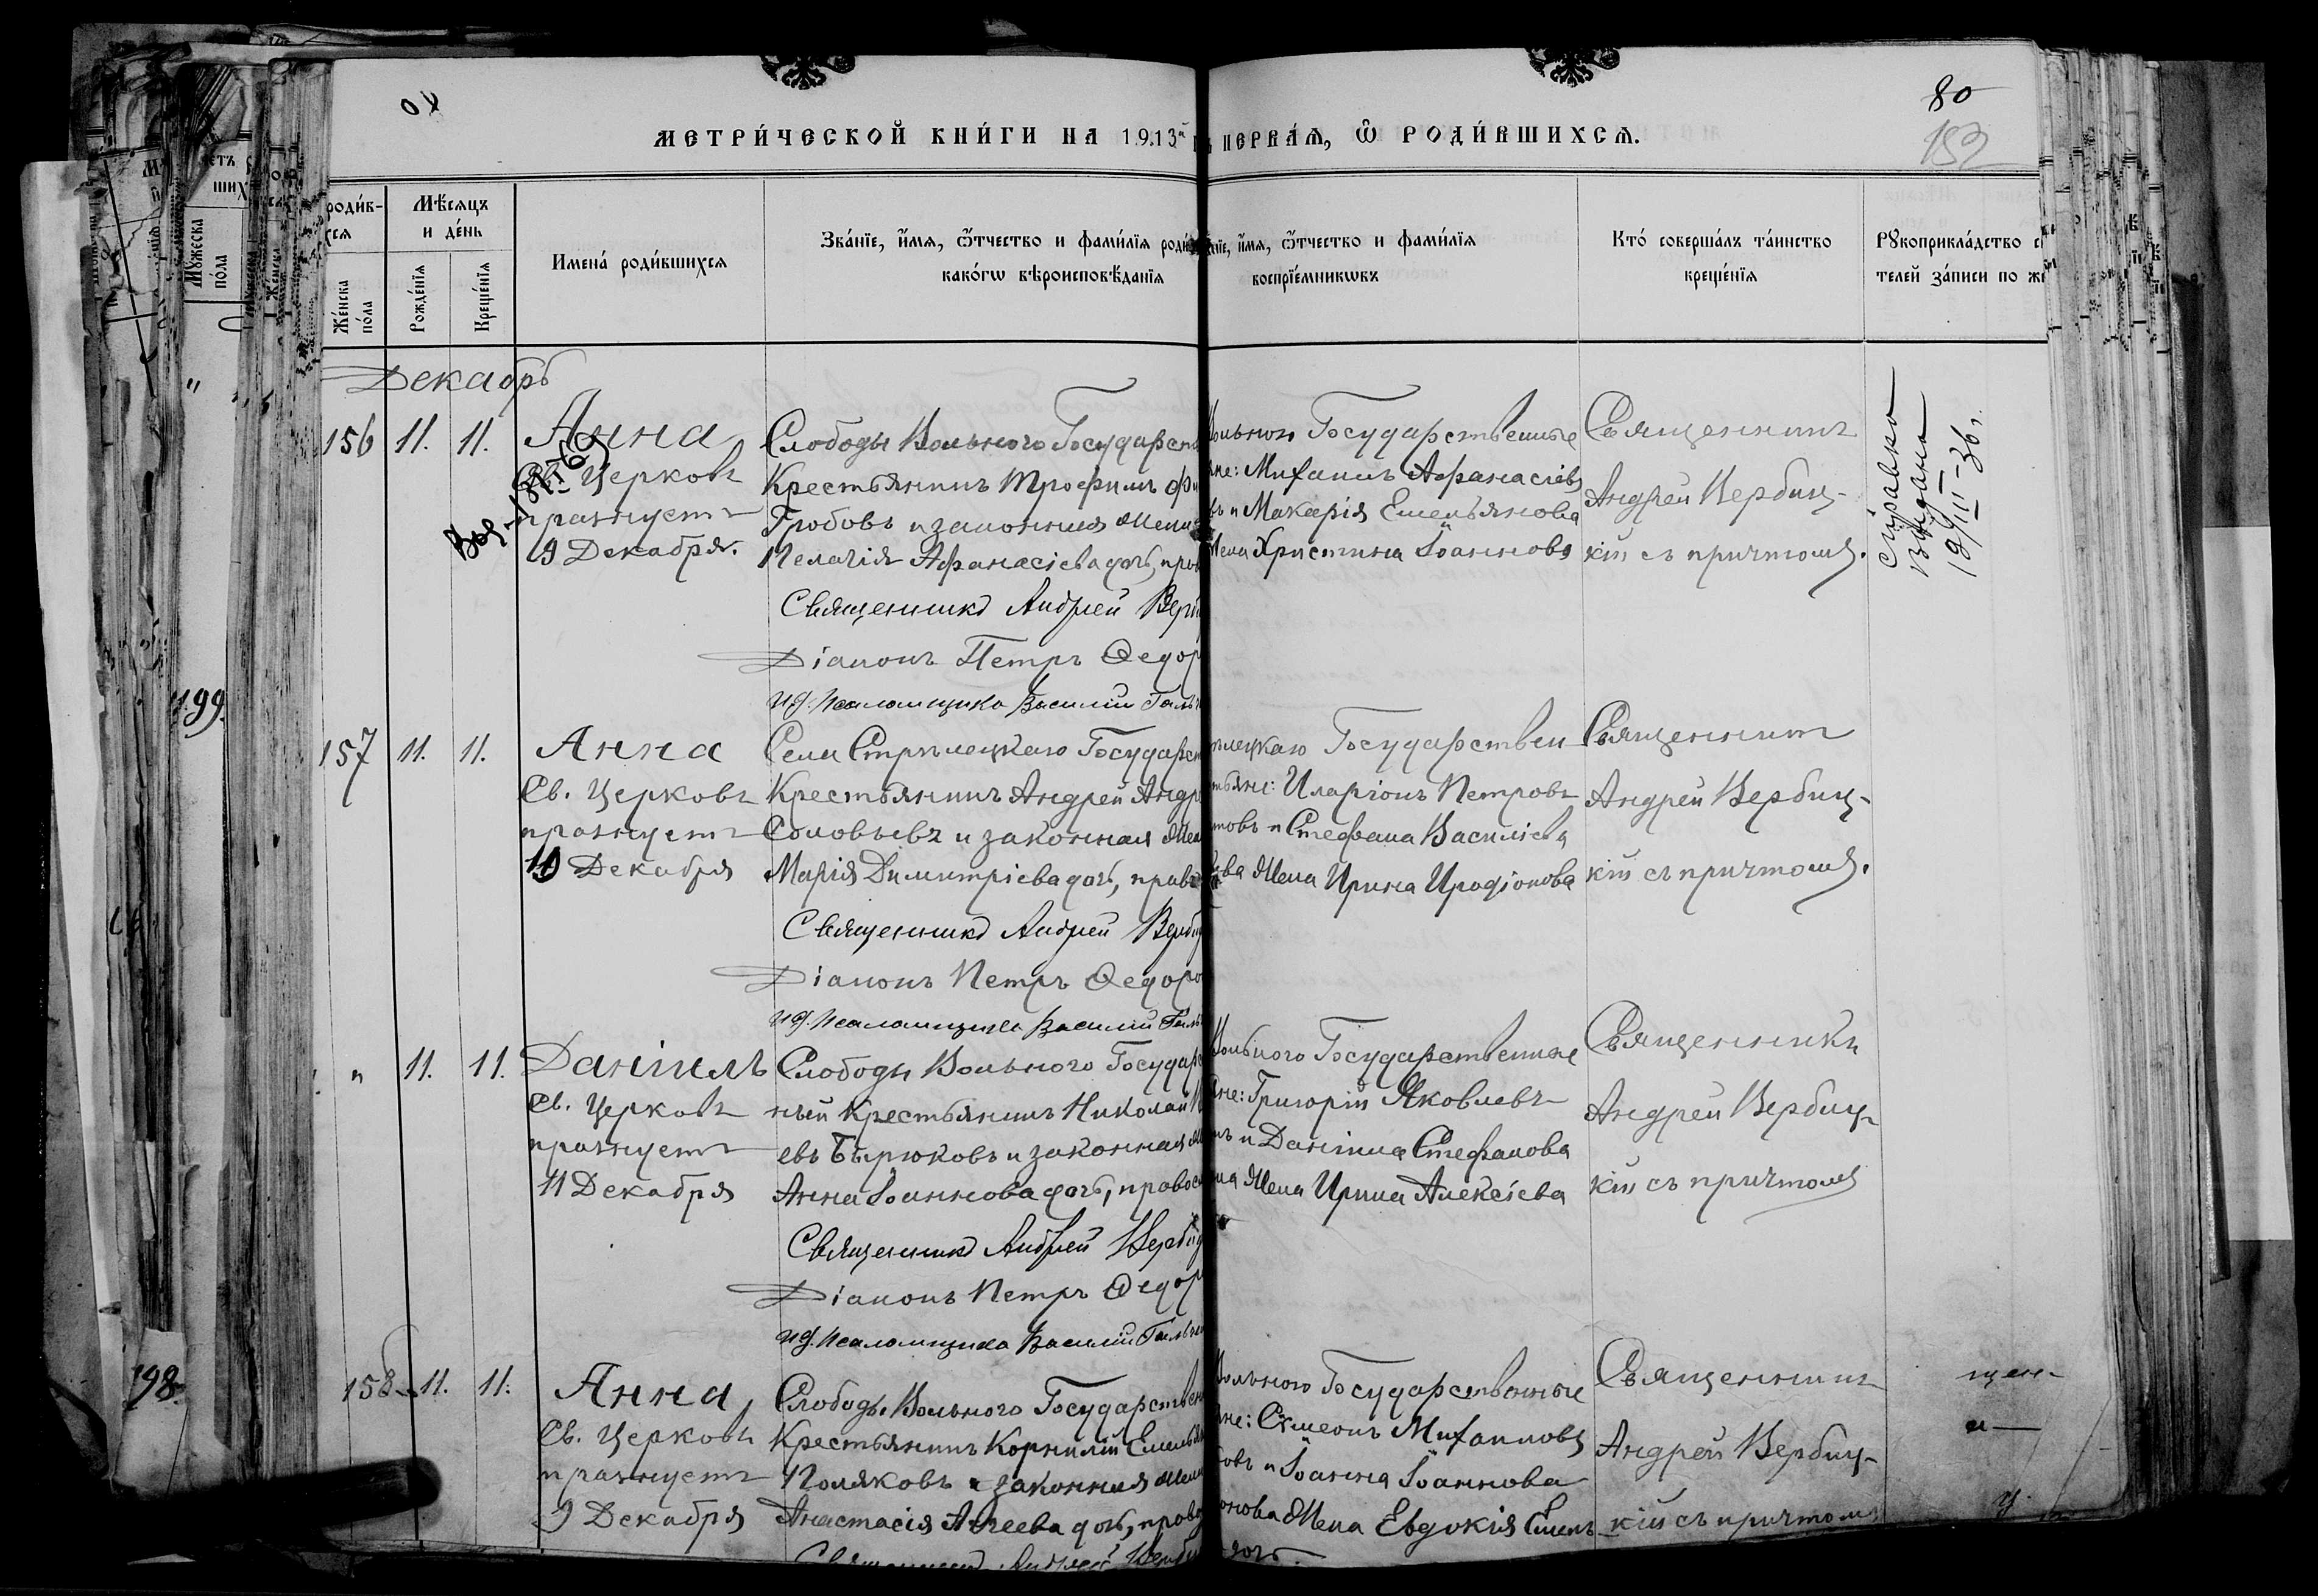 80
159
МЕТРИ́ЧЕСКОЙ КНИ́ГИ НА 1913
ПЕРВАѦ, Ѡ РОДИ́ВШИХСѦ.
роди́в-
хся
Мѣ́сяцъ
и де́нь
Же́нска
по́ла
Рожде́нїя
Креще́нїя
Имена́ роди́вшихся
Зва́нїе, и́мя, ѻ́тчество и фами́лїя роди
како́гѡ вѣроисповѣ́данїя
и́мя, ѻ́тчество и фами́лїя
воспрїе́мникѡвъ
Кто́ соверша́лъ та́инство
креще́нїя
Рꙋкоприкла́дство
телей за́писи по
Декабрь
156 11. 11. Анна
Св. Церковь
празнуетъ
9 Декабря.
Слободы Вольного Государств
Крестьянинъ Трофимъ
Гробовъ и законная жена
Пелагія Афанасіева дочь, прав
Священникъ Андрей Верб
Діаконъ Петръ Ѳедор
ид. Псаломщика Василій Галь
Вольного Государственные
не: Михаилъ Афанасіевъ
въ и Макарія Емельянова
жена Христина Іоаннова
Священникъ
Андрей Вербиц-
кій съ причтомъ.
справка
выдана
19/III-36 г.
157 11. 11. Анна
Св. Церковь
празнуетъ
Декабря
Села Стрѣлецкаго Государст
Крестьянинъ Андрей Андре
Соловьевъ и законная жена
Марія Димитріева дочь, прав
Священникъ Андрей Вербиц
Діаконъ Петръ Ѳедоро
ид. Псаломщика Василій Галь
лецкаго Государствен
тьяне: Иларіонъ Петровъ
товъ и Стефана Василіева
ва жена Ирина Иродіонова
Священникъ
Андрей Вербиц-
кій съ причтомъ.
" 11. 11. Даніилъ
Св. Церковь
празнуетъ
11 Декабря
Слободы Вольного Государс
ный Крестьянинъ Николай
евъ Бырюковъ и законная ж
Анна Іоаннова дочь, правос
Священникъ Андрей Вербиц
Діаконъ Петръ Ѳедор
ид. Псаломщика Василій Гальч
Вольного Государственные
не: Григорій Яковлевъ
и Даніила Стефанова
на жена Ирина Алексіева
Священникъ
Андрей Вербиц-
кій съ причтомъ
158 11. 11. Анна
Св. Церковь
празнуетъ
9 Декабря
Слободы Вольного Государствен
Крестьянинъ Корнилій Емелья
Поляковъ и законная жена
Анастасія Авгеева дочь, прав
Священникъ Андрей Верби
Вольного Государственные
не: Симеонъ Михаиловъ
бовъ и Іоанна Іоаннова
онова жена Евдокія Емель
дочь.
Священникъ
Андрей Вербиц-
кій съ причтомъ
199.
198